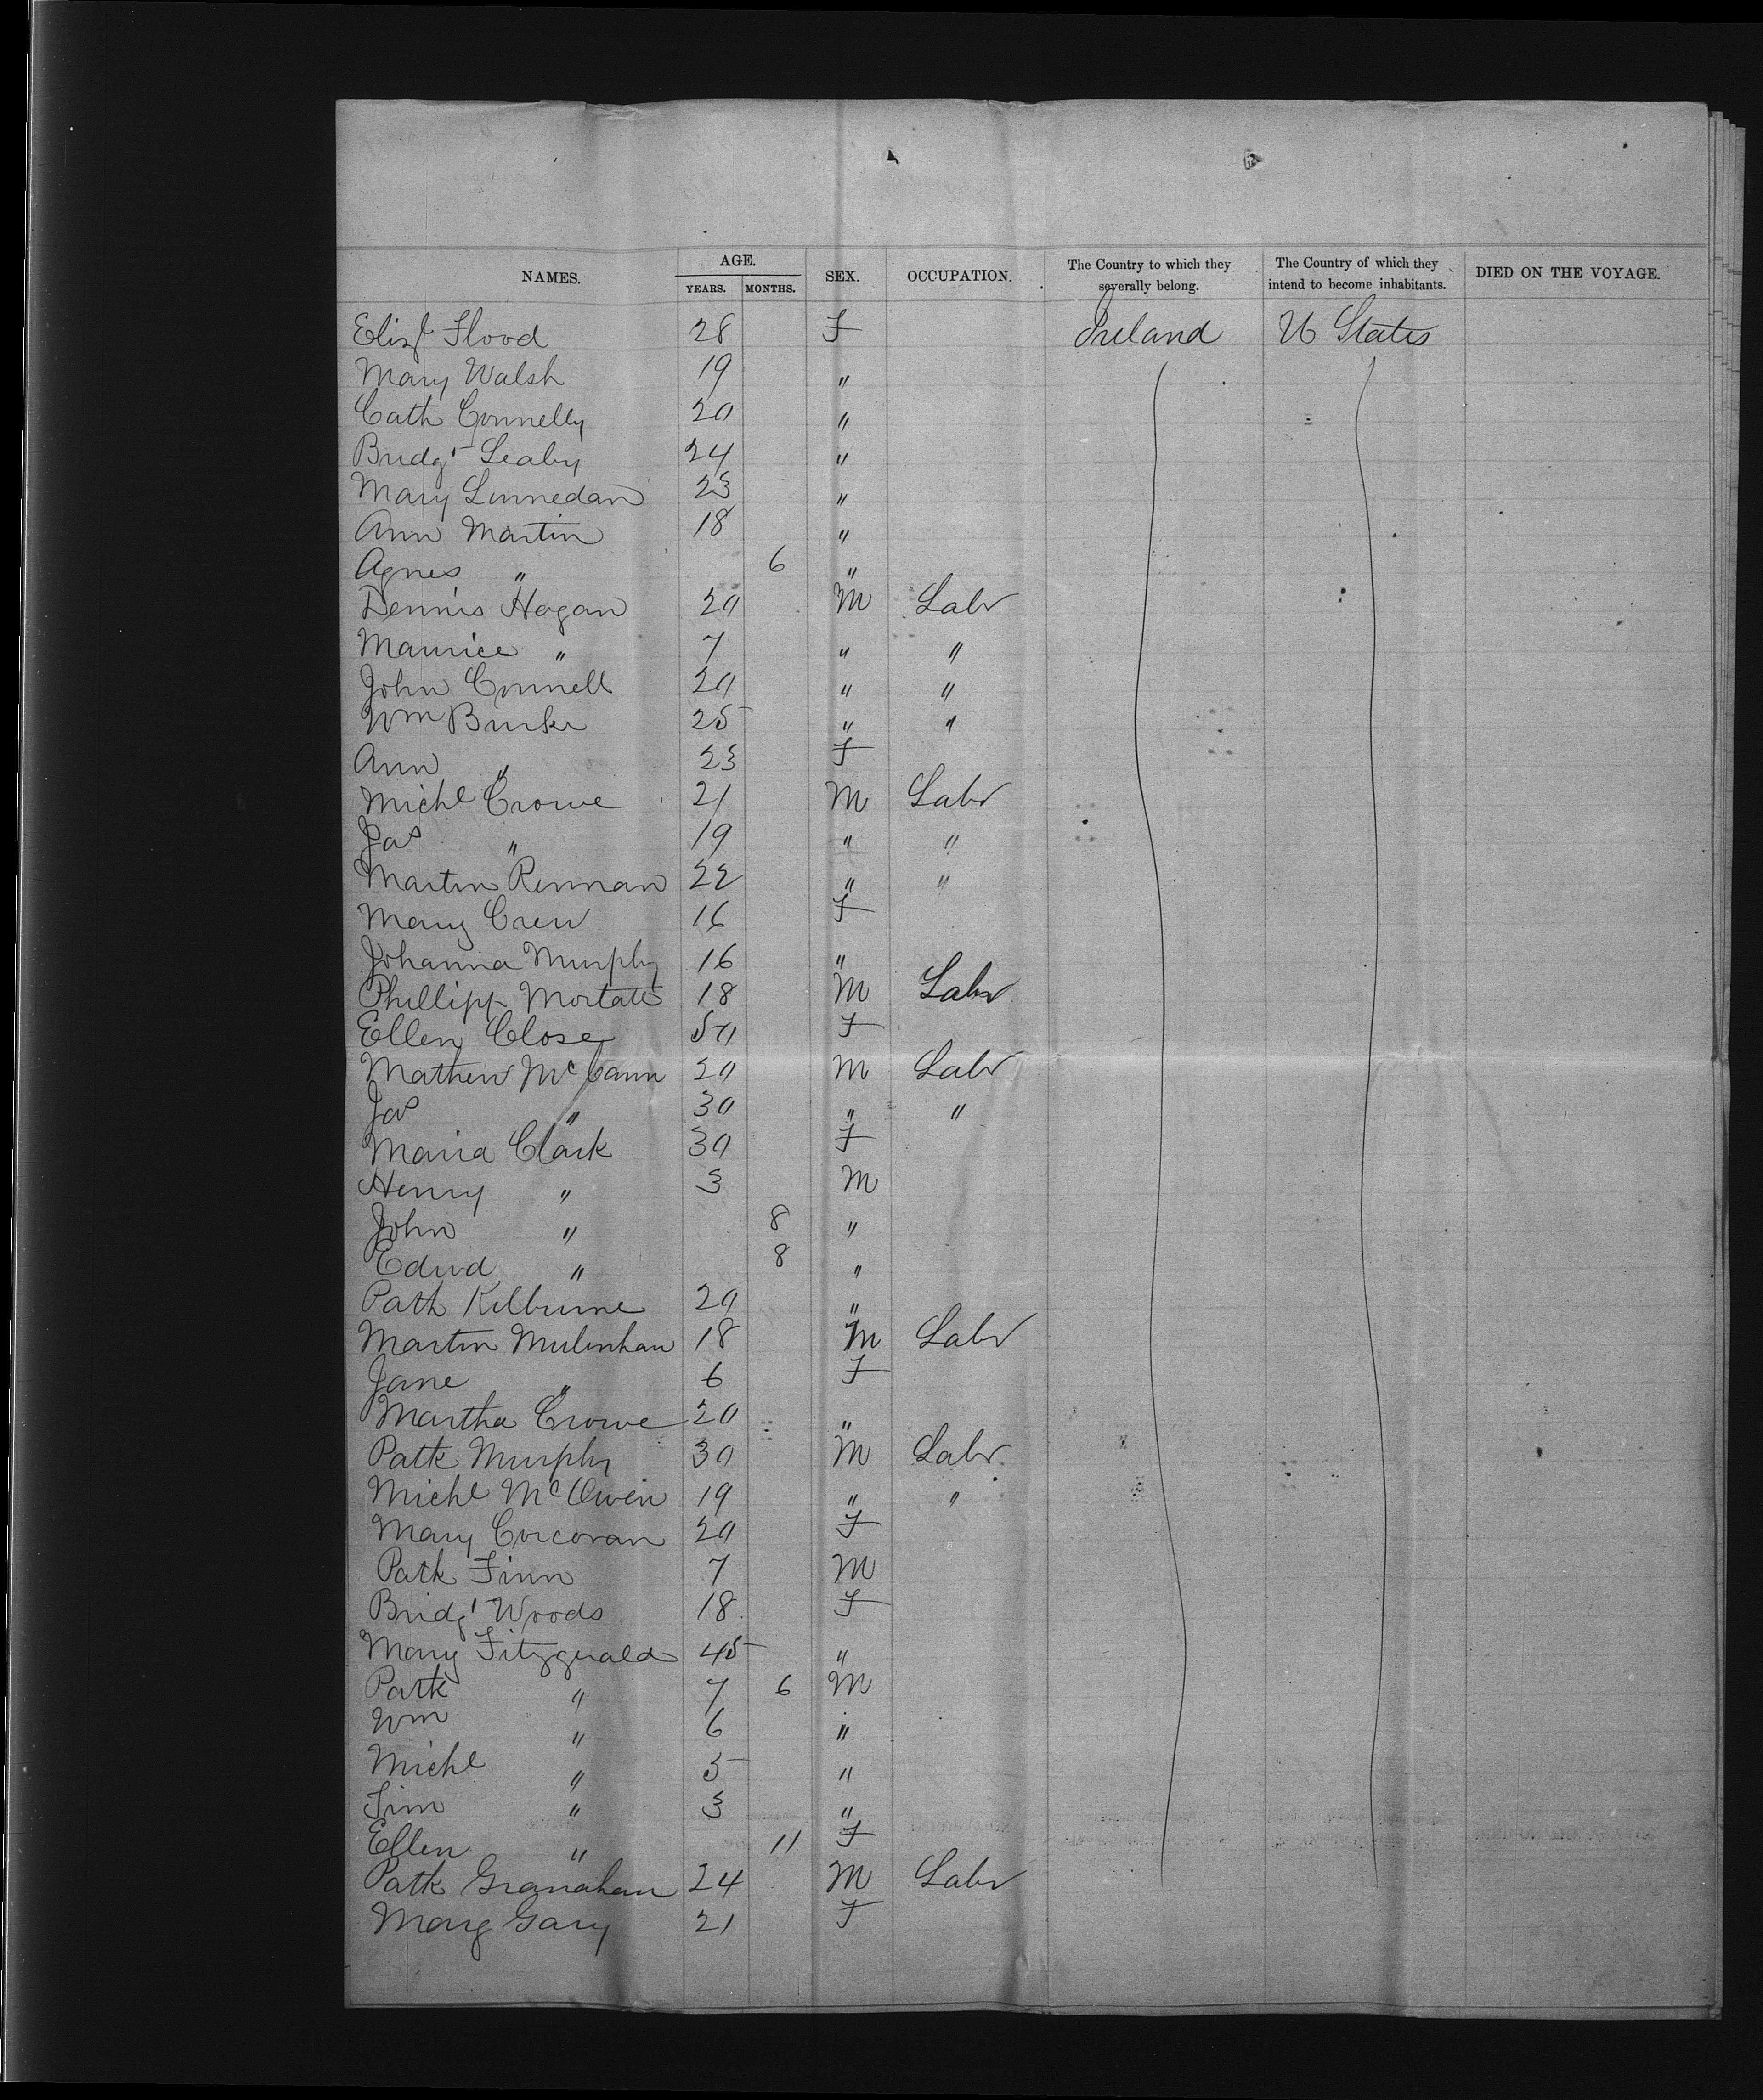 NAMES. AGE. YEARS. MONTHS. SEX. OCCUPATION. The Country to which they severally belong. The Country of which they intend to become inhabitants. DIED ON THE VOYAGE.
Elizt Flood 28 F Ireland U States
Mary Walsh 19 "
Cath Connelly 20 "
Bridgt Leahy 24 "
Mary Linnedan 23 "
Ann Martin 18 "
Agnes " 6 "
Dennis Hogan 20 M Labr
Maurice " 7 " "
John Connell 20 " "
Wm Burke 25 " "
Ann " 23 F
Michl Crowe 21 M Labr
Jas " 19 " "
Martin Rennan 22 " "
Mary Crew 16 F
Johanna Murphy 16 "
Phillipp 18 M Labr
Ellen Close 50 F
Mathew McCann 20 M Labr
Jas " 30 " "
Maria Clark 30 F
Henry " 3 M
John " 8 "
Edwd " 8 "
Patk Kilburne 20 "
Martin Mulinhan 18 M Labr
Jane " 6 F
Martha Crowe 20 "
Patk Murphy 30 M Labr
Michl McOwen 19 " "
Mary Corcoran 20 F
Patk Finn 7 M
Bridgt Woods 18 F
Mary Fitzgerald 45 "
Patk " 7 6 M
Wm " 6 "
Michl " 5 "
Tim " 3 "
Ellen " 11 F
Patk Granahan 24 M Labr
Marg Gary 21 F